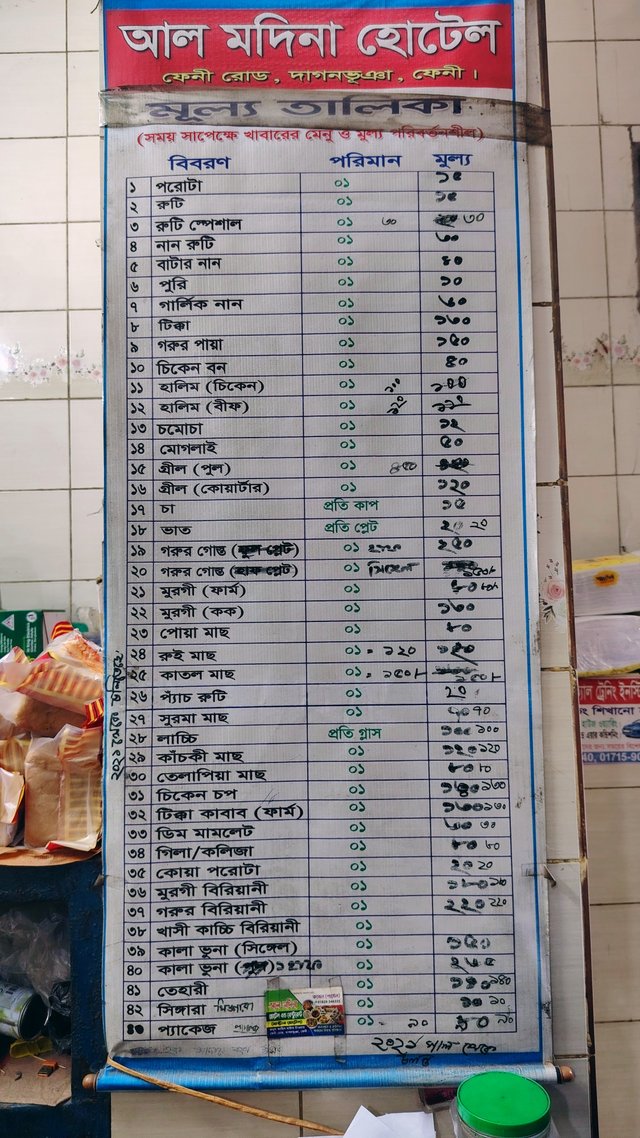 আল মদিনা হোটেল
ফেনী রোড, দাগনভূঞা, ফেনী।
মূল্য তালিকা
(সময় সাপেক্ষে খাবারের মেনু ও মূল্য পরিবর্তনশীল)
বিবরণ পরিমান মূল্য
১ পরোটা ০১ ১৫
২ রুটি ০১ ১৫
৩ রুটি স্পেশাল ০১ ৩০ ৩০
৪ নান রুটি ০১
৫ বাটার নান ০১
৬ পুরি ০১ ১০
৭ গার্লিক নান ০১
৮ টিক্কা ০১ ১৬০
৯ গরুর পায়া ০১ ১৫০
১০ চিকেন বন ০১ ৪০
১১ হালিম (চিকেন) ০১ ১০০
১২ হালিম (বীফ) ০১ ১২০
১৩ চমোচা ০১ ১২
১৪ মোগলাই ০১ ৫০
১৫ গ্রীল (পুল) ০১ ৪৫০
১৬ গ্রীল (কোয়ার্টার) ০১ ১২০
১৭ চা প্রতি কাপ ১৫
১৮ ভাত প্রতি প্লেট ২০ ২০
১৯ গরুর গোস্ত (ফুল প্লেট) ০১ ২৫০
২০ গরুর গোস্ত (হাফ প্লেট) ০১ সিঙ্গেল ১৫০৲
২১ মুরগী (ফার্ম) ০১ ৮০৲
২২ মুরগী (কক) ০১ ১৬০
২৩ পোয়া মাছ ০১ ৮০
২৪ রুই মাছ ০১ = ১২০
২৫ কাতল মাছ ০১ = ১৫০৲ ১৫০৲
২৬ প্যাঁচ রুটি ০১ ২০
২৭ সুরমা মাছ ০১
২৮ লাচ্চি প্রতি গ্লাস ১০০ ১০০
২৯ কাঁচকী মাছ ০১ ১২০ ১২০
৩০ তেলাপিয়া মাছ ০১ ৮০ ৮০
৩১ চিকেন চপ ০১ ১৬০
৩২ টিক্কা কাবাব (ফার্ম) ০১ ১৬০ ১৬০
৩৩ ডিম মামলেট ০১ ৩০
৩৪ গিলা/কলিজা ০১ ৮০
৩৫ কোয়া পরোটা ০১ ২০ ২০
৩৬ মুরগী বিরিয়ানী ০১
৩৭ গরুর বিরিয়ানী ০১ ২২০ ২২০
৩৮ খাসী কাচ্চি বিরিয়ানী ০১
৩৯ কালা ভুনা (সিঙ্গেল) ০১ ১৫০
৪০ কালা ভুনা ০১
৪১ তেহারী ০১ ১৪০
৪২ সিঙ্গারা ১০ ১০
৪৩ প্যাকেজ ০১ = ৯০ ৯০
২০২১ সাল থেকে